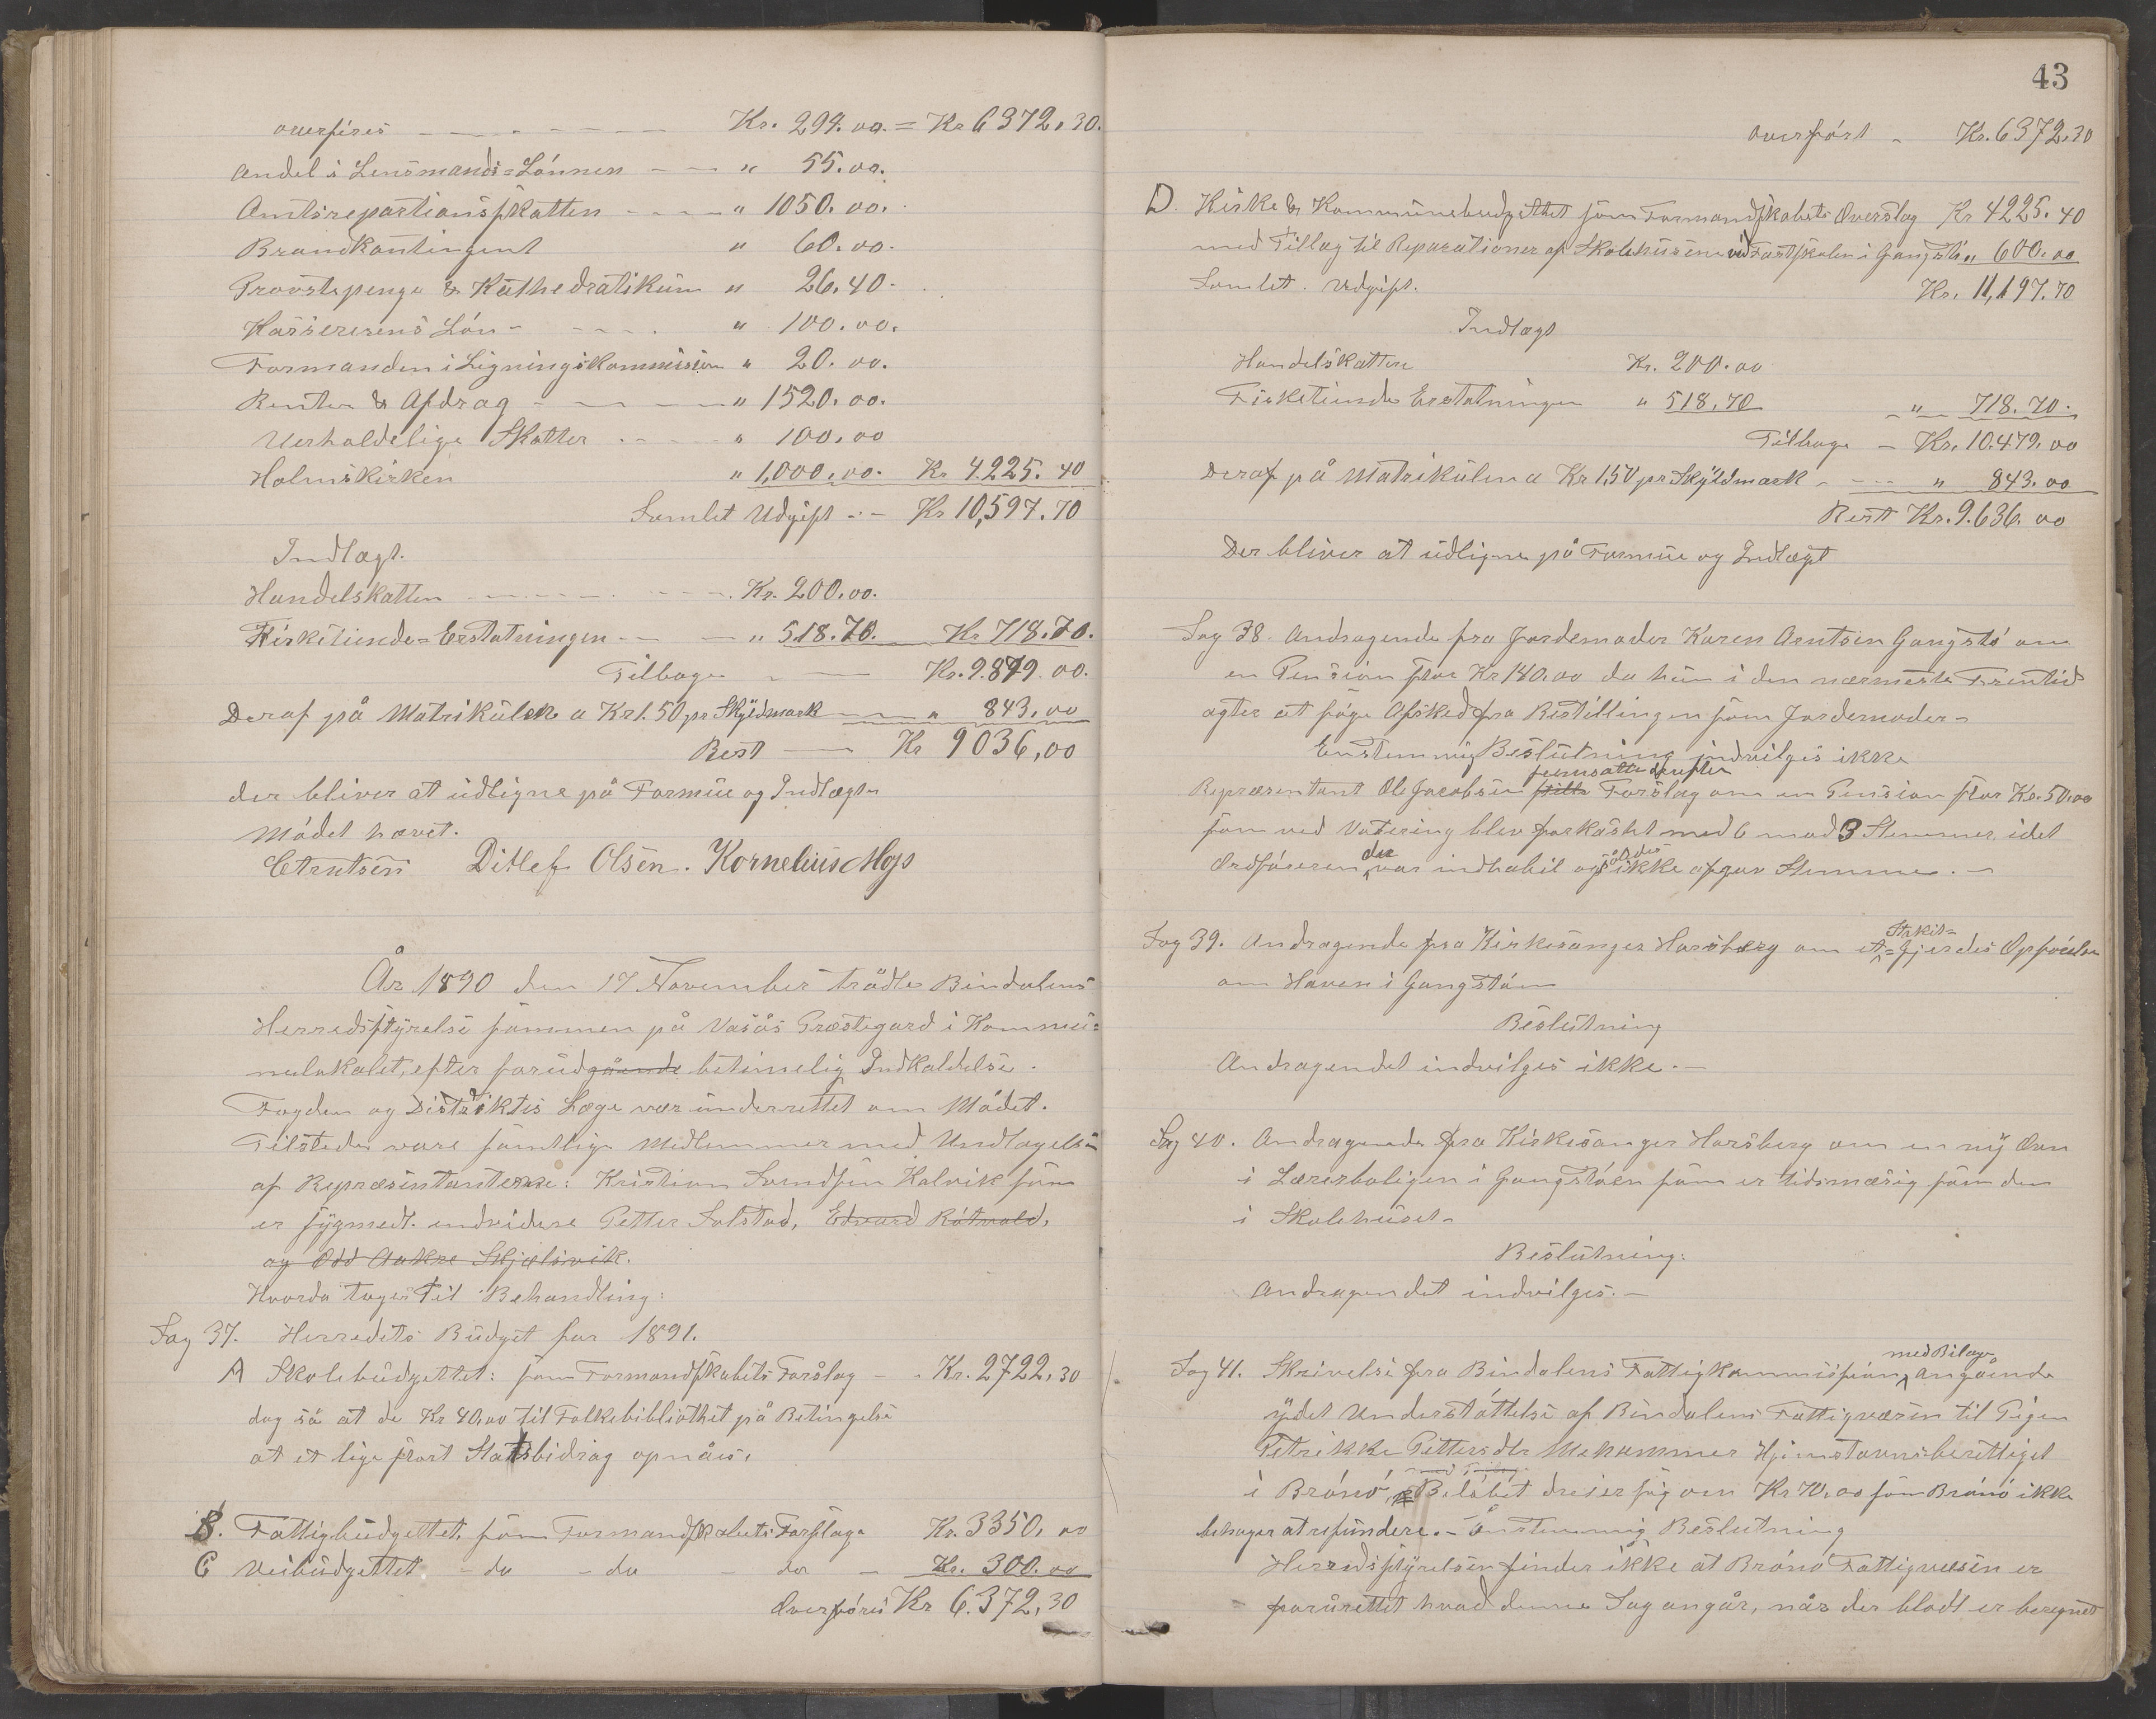 overføres Kr. 294.00. = Kr 6372,30.
Andel i Lensmands=Lønnen " 55.00.
Amtsrepartionsskatten " 1050.00.
Brandkontingent " 60.00.
Provstepenge & Kathedratikum " 26.40.
Kassererens Løn " 100.00.
Formanden i Ligningskommission " 20.00.
Renter & Afdrag " 1520.00.
Uerholdelige Skatter " 100.00
Holmskirken " 1,000.00. Kr 4.225.40
Samlet Udgift Kr 10,597.70
Indtægt.
Handelskatten Kr. 200.00.
Fisketiende=Erstatningen " 518.70. Kr 718.70.
Tilbage Kr. 9.879.00.
Deraf på Matrikulen a Kr 1.50 pr Skyldmark " 843.00
Rest Kr 9036,00
der bliver at udligne på Formue og Indtægt
Mødet hævet.
CArntsen Ditlef Olsen. Kornelius Moes
År 1890 den 17 November trådte Bindalens
Herredsstyrelse sammen på Vasås Præstegard i Kommu=
nelokalet, efter forudgående betimelig Indkaldelse.
Fogden og Distriktis Læge var underrettet om Mødet.
Tilstede vare samtlige Medlemmer med Undtagelse
af Repræsentanterne: Kristian Svendsen Kalvik som
er sygmedt. endvidere Petter Solstad, Edvard Røtvold,
og Odd Aakre Skjelsvik.
Hvorda toges til Behandling:
Sag 37. Herredets Budget for 1891.
A Skolebudgettet: som Formandskabets Forslag Kr. 2722,30
dog så at de Kr 40,00 til Folkebibliothek på Betingelse
at et lige stort Statsbidrag opnåes.
B. Fattigbudgettet, som Formandskabets Forslag Kr. 3350,00
C Veibudgettet do do do Kr. 300.00
Overføres Kr 6.372,30
43
overført Kr. 6372,30
D. Kirke & Kommunebudgettet som Formandskabets Overslag Kr 4225.40
med Tillæg til Reparationer af Skolehusene ved Fastskolen i Gangstø " 600.00
Samlet Udgift. Kr. 11,197.70
Indtægt
Handelskatten Kr. 200.00
Fisketiende Erstatningen " 518,70 " 718.70.
Tilbage Kr. 10.479,00
Deraf på Matrikulen a Kr 1,50 pr Skyldmark " 843.00
Rest Kr. 9.636,00
Der bliver at udligne på Formue og Indtægt
Sag 38. Andragende fra Jordemoder Karen Arntsen Gangstø om
en Pension stor Kr 140.00 da hun i den nærmeste Fremtid
agter at søge Afsked fra Bestillingen som Jordemoder
Enstemmig Beslutning indvilges ikke
fremsatte derefter
Repræsentant Ole Jacobsen stille Forslag om en Pension stor Kr. 50.00
som ved Votering blev forkastet med 6 mod 3 Stemmer, idet
Ordføreren der var indhabil og således ikke afgav Stemme.
Sag 39. Andragende fra Kirkesanger Horsberg om et Stakit= Gjerdes Opførelse
om Haven i Gangstøen
Beslutning
Andragendet indvilges ikke.
Sag 40. Andragende fra Kirkesanger Horsberg om en ny Ovn
i Lærerboligen i Gangstøen som er tidsmæsig som den
i Skolehuset
Beslutning:
Andragendet indvilges.
Sag 41. Skrivelse fra Bindalens Fattigkommission med Bilage angående
ydet Understøttelse af Bindalens Fattigvæsen til Pigen
Petrikke Pettersdtr Mehammer Hjemstavnsberettiget
i Brønø, Beløbet dreier sig om Kr 70.00 som Brønø ikke
behager at refundere. Enstemmig Beslutning
Herredsstyrelsen finder ikke at Brønø Fattigvæsen er
forurettet hvad denne Sag angår, når der blodt er beregnet